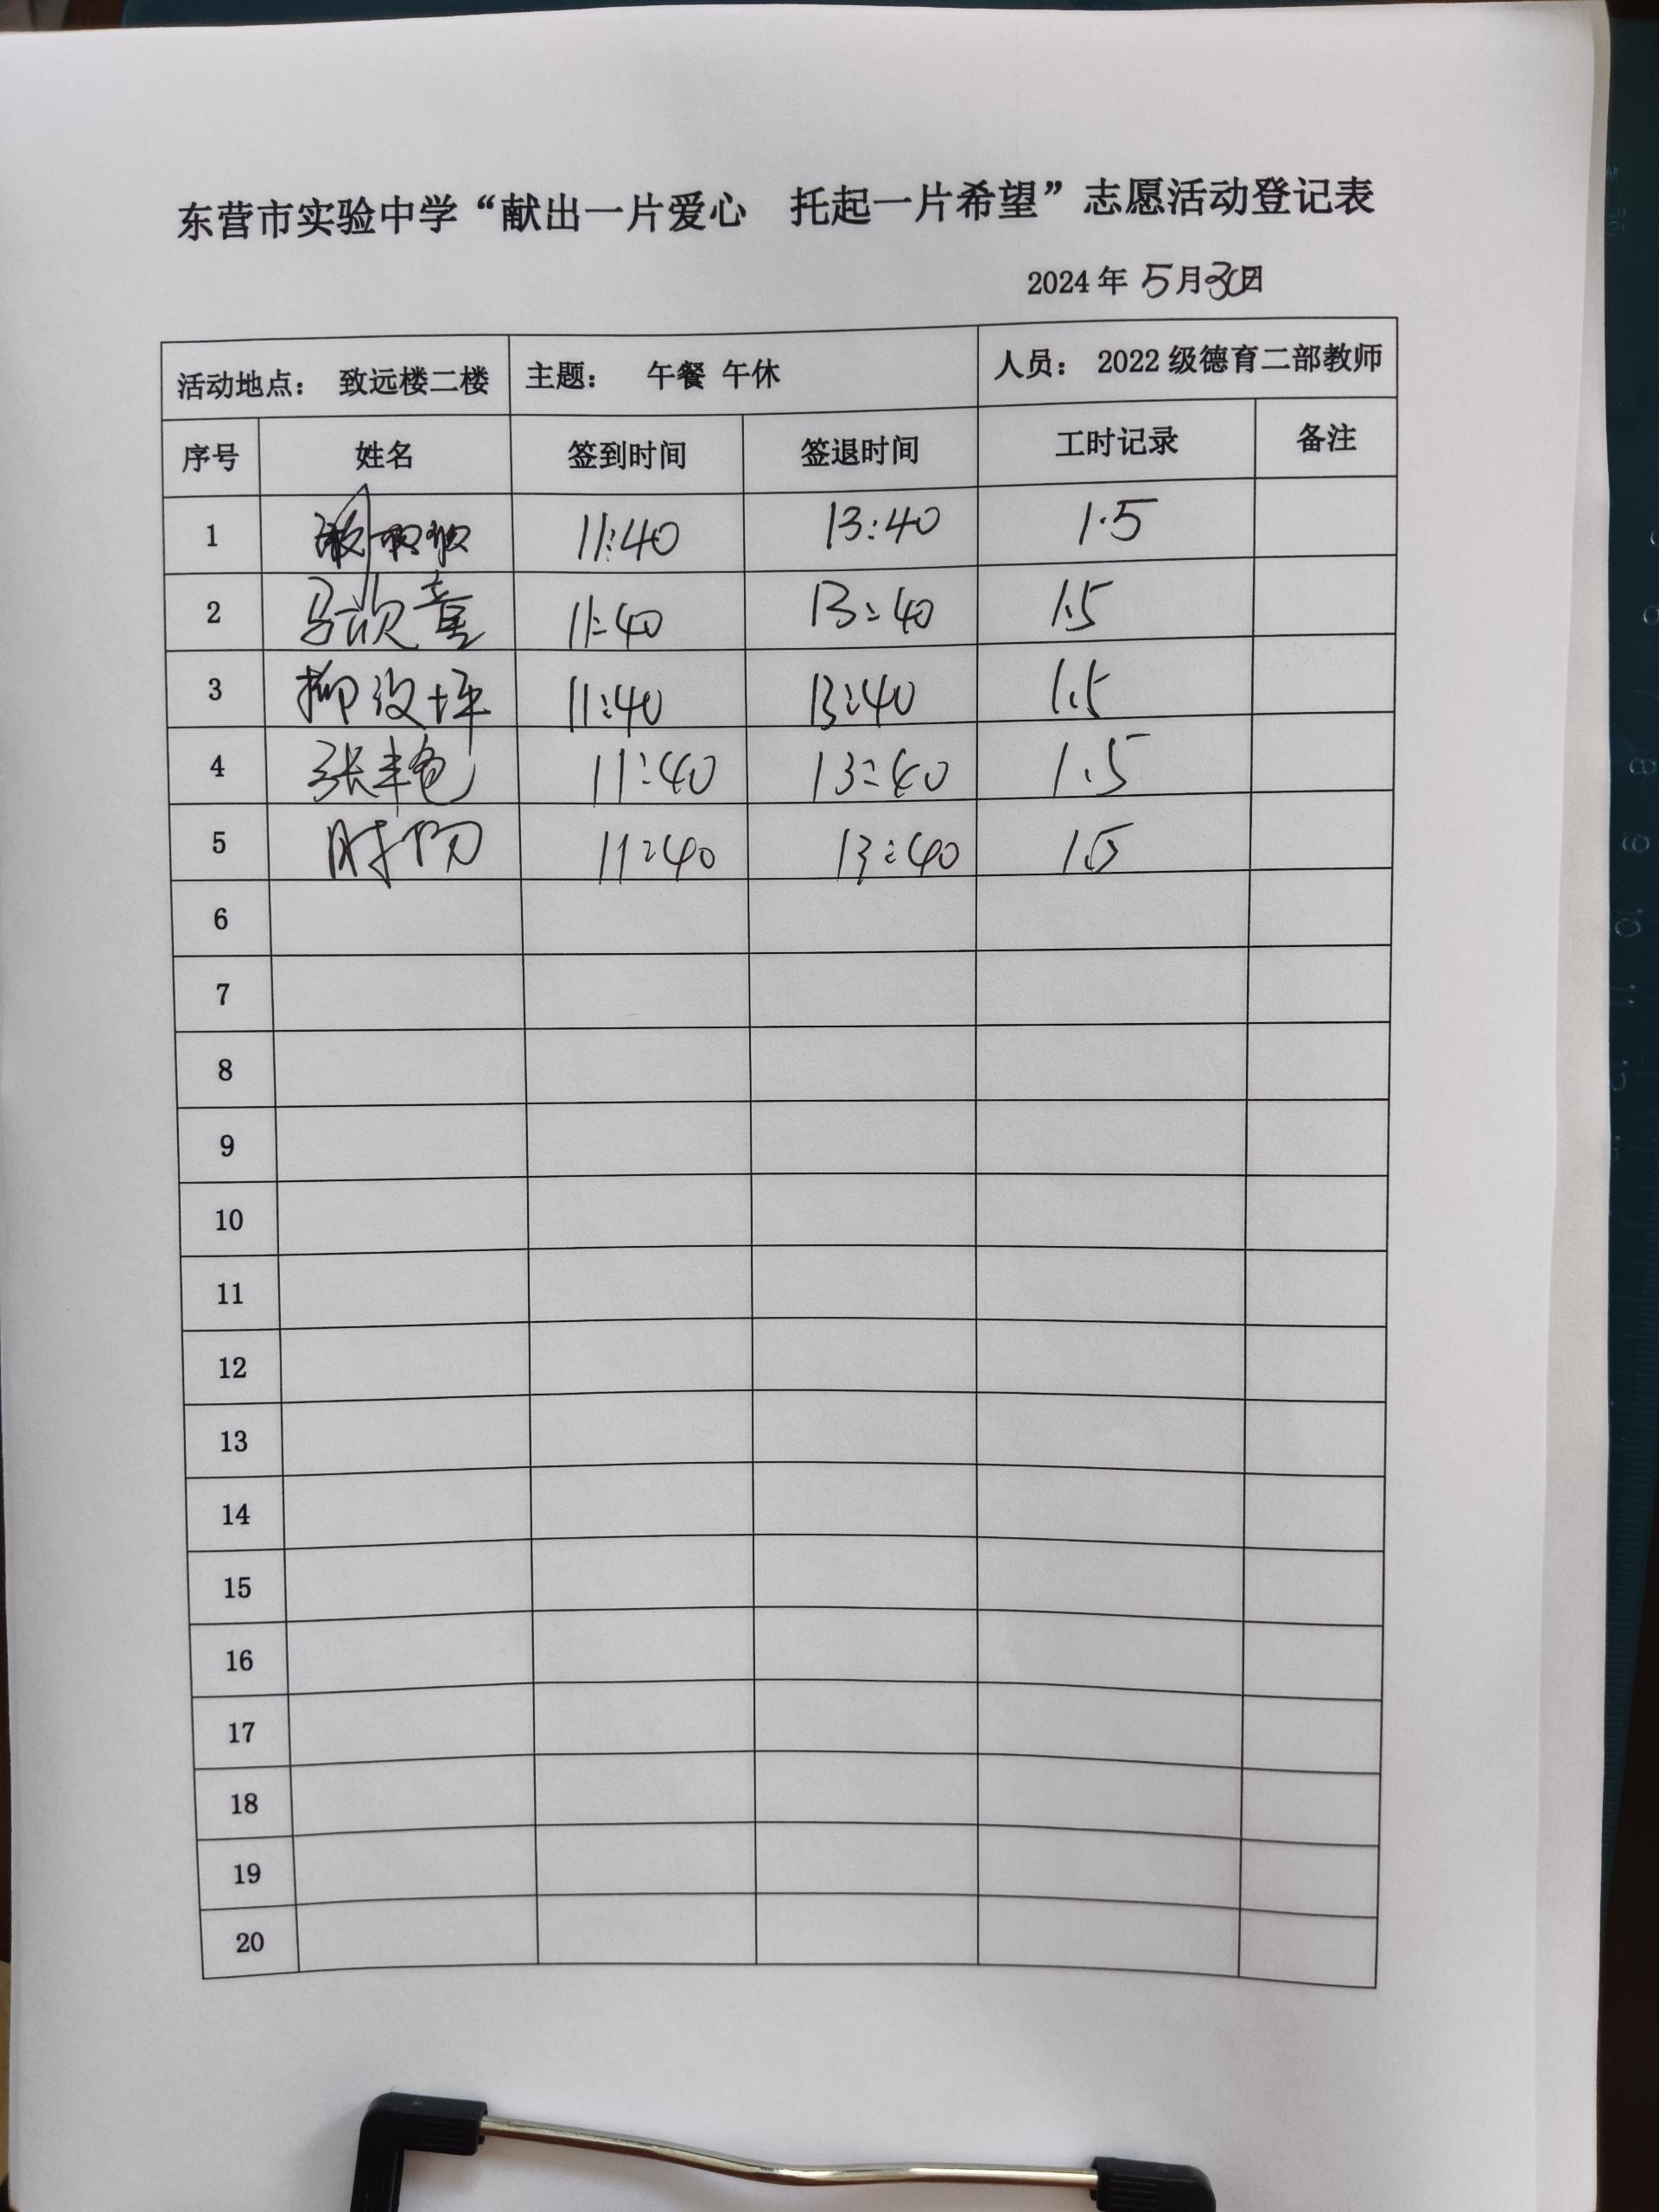 东营市实验中学“献出一片爱心 托起一片希望”志愿活动登记表
2024 年 5 月 30 日
活动地点： 致远楼二楼 主题： 午餐 午休 人员： 2022 级德育二部教师
序号 姓名 签到时间 签退时间 工时记录 备注
1 11:40 13:40 1.5
2 马欣童 11:40 13:40 1.5
3 柳汶坪 11:40 13:40 1.5
4 张艳 11:40 13:40 1.5
5 时阳 11:40 13:40 1.5
6
7
8
9
10
11
12
13
14
15
16
17
18
19
20